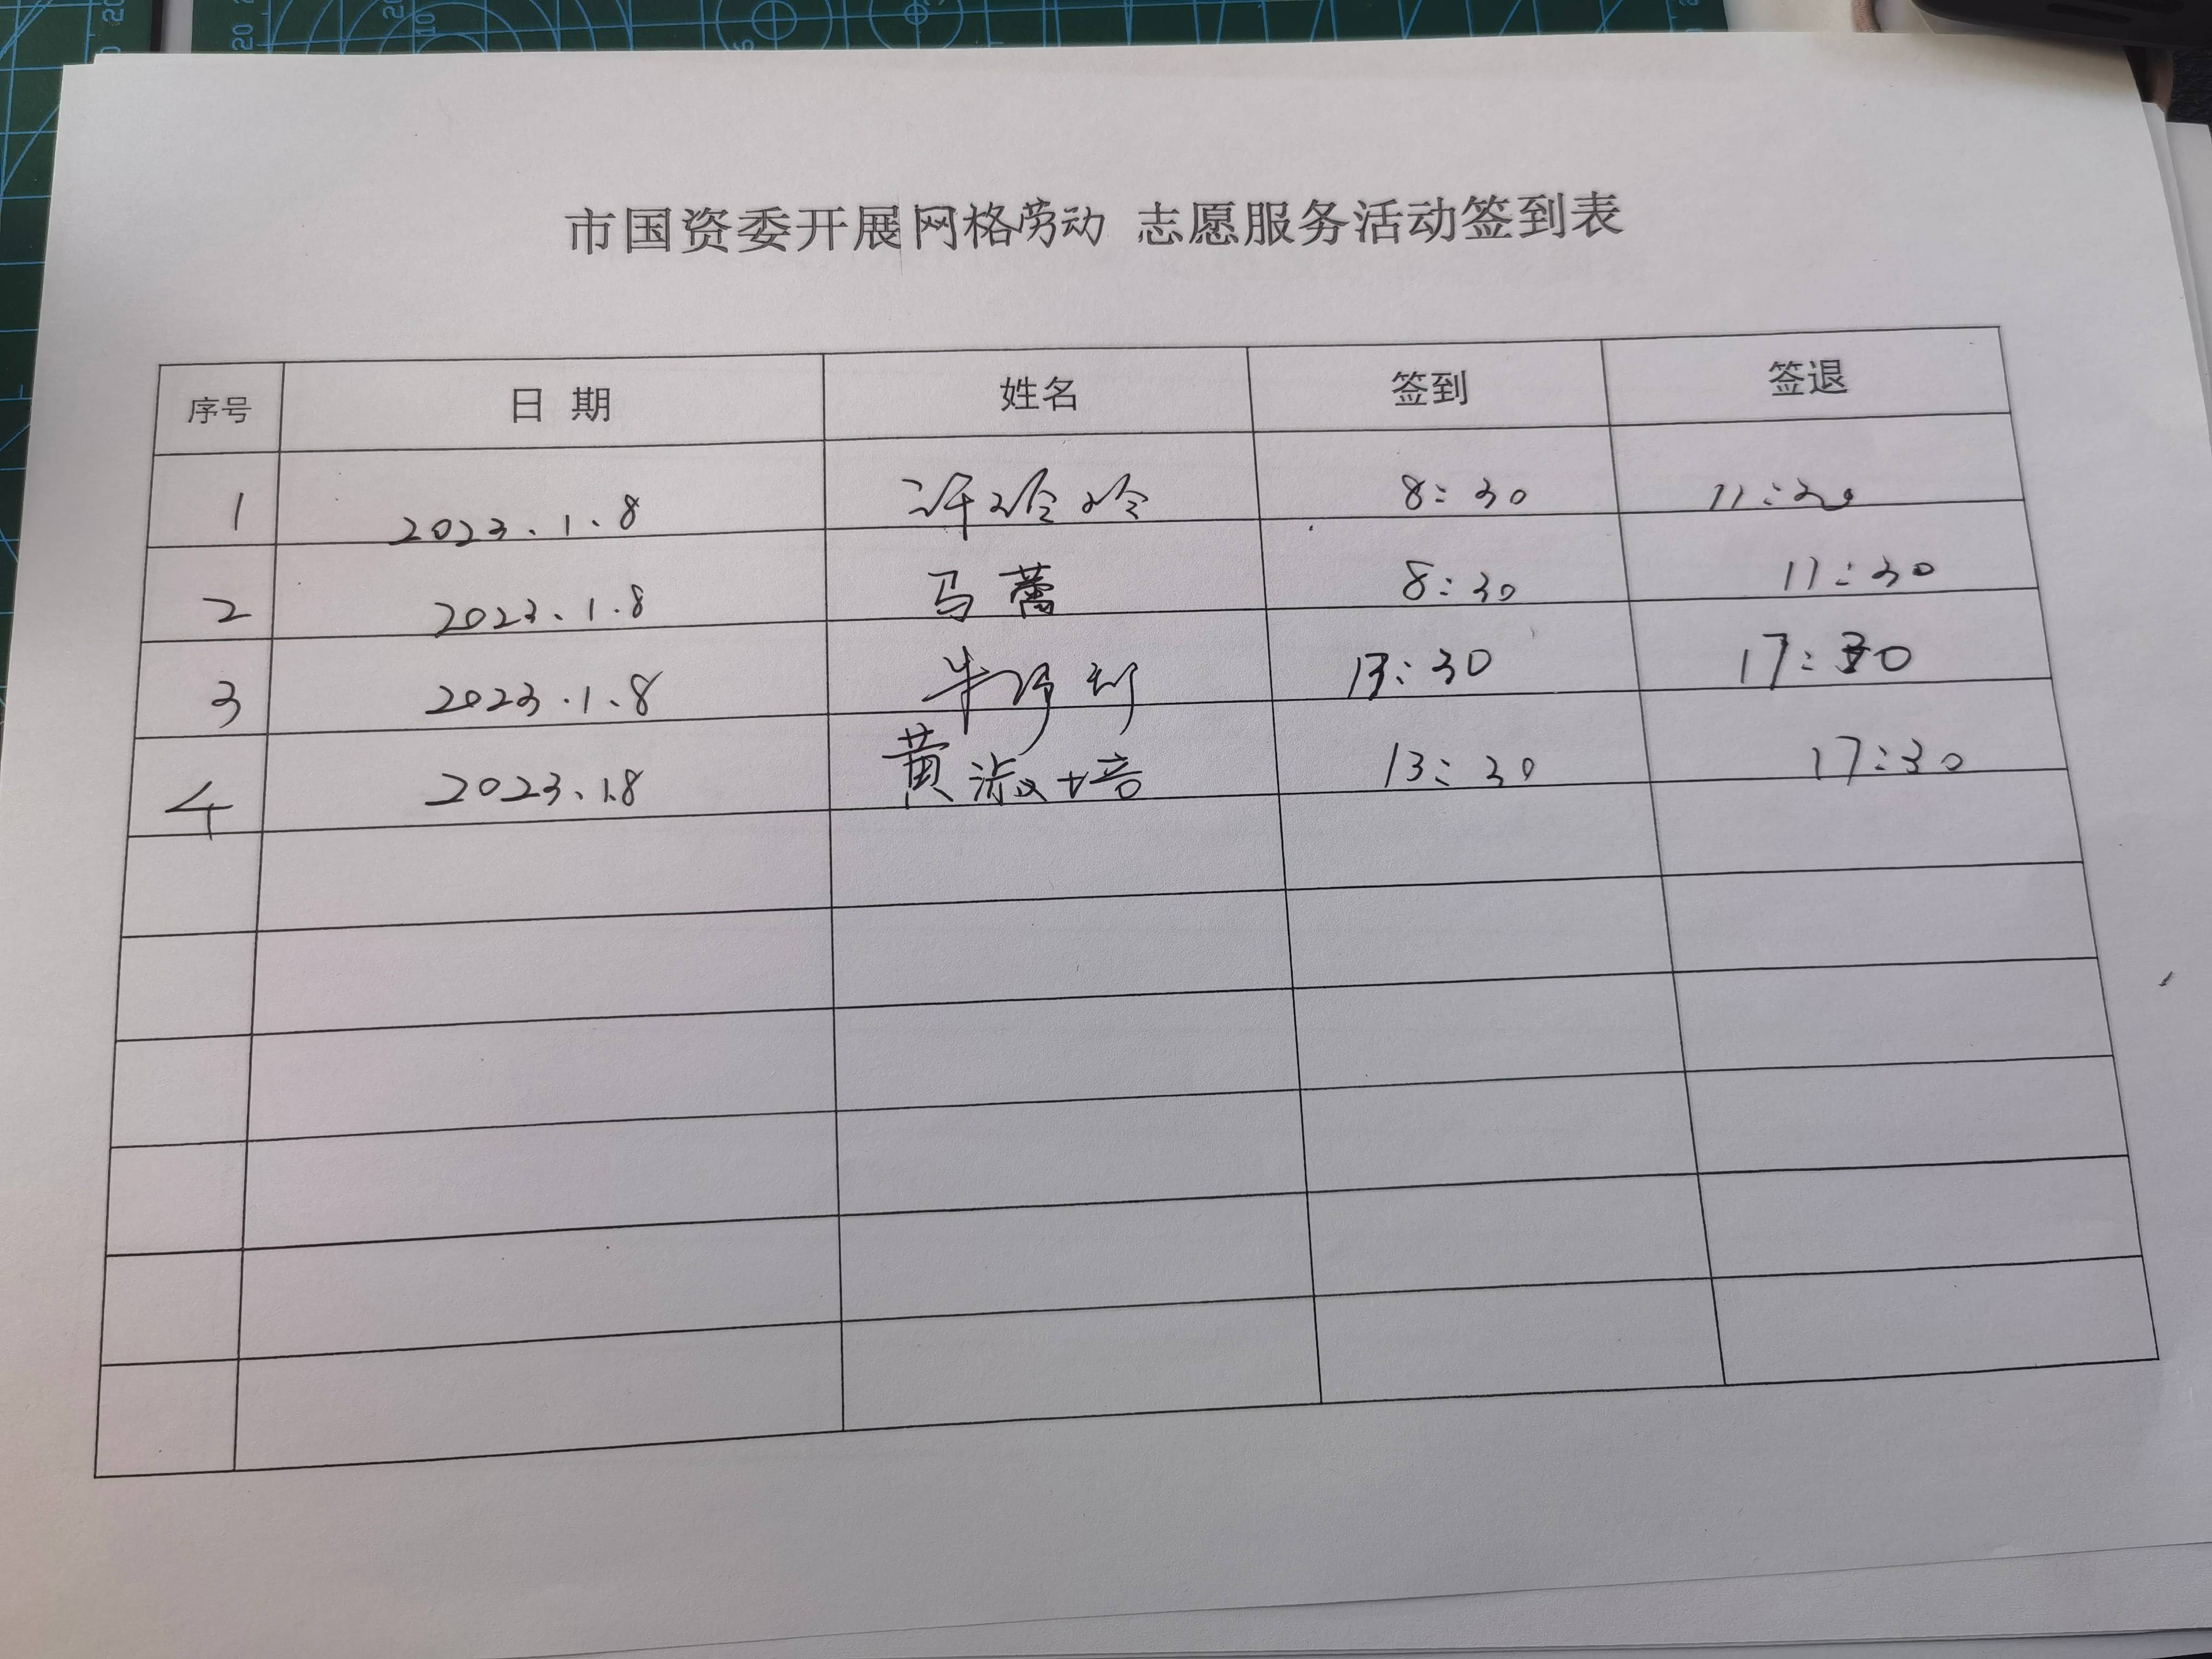 市国资委开展网格劳动 志愿服务活动签到表
序号 日期 姓名 签到 签退
1 2023.1.8 许玲玲 8:30 11:30
2 2023.1.8 马蕾 8:30 11:30
3 2023.1.8 牛 13:30 17:30
4 2023.1.8 黄淑培 13:30 17:30